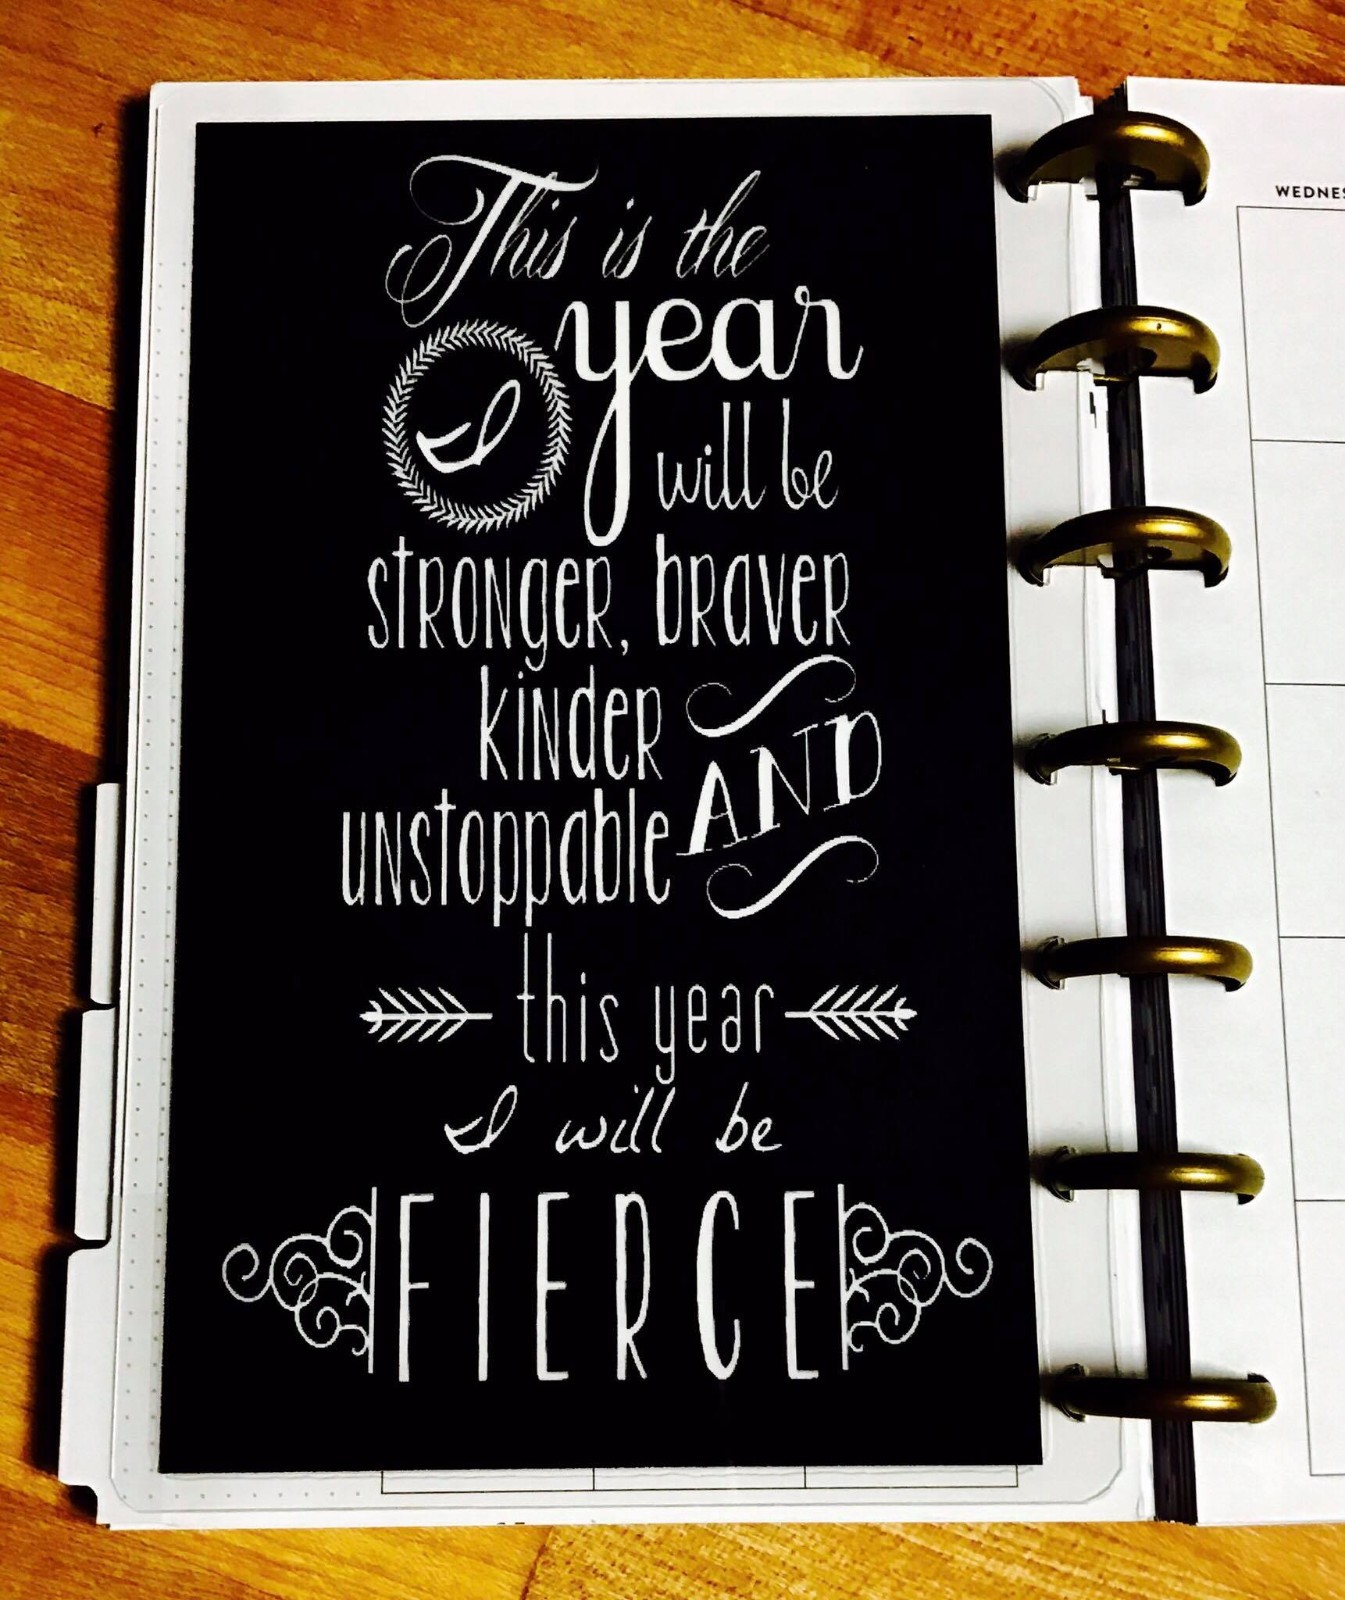 This is the
year
I will be
stronger, braver
kinder AND
unstoppable
this year
I will be
FIERCE